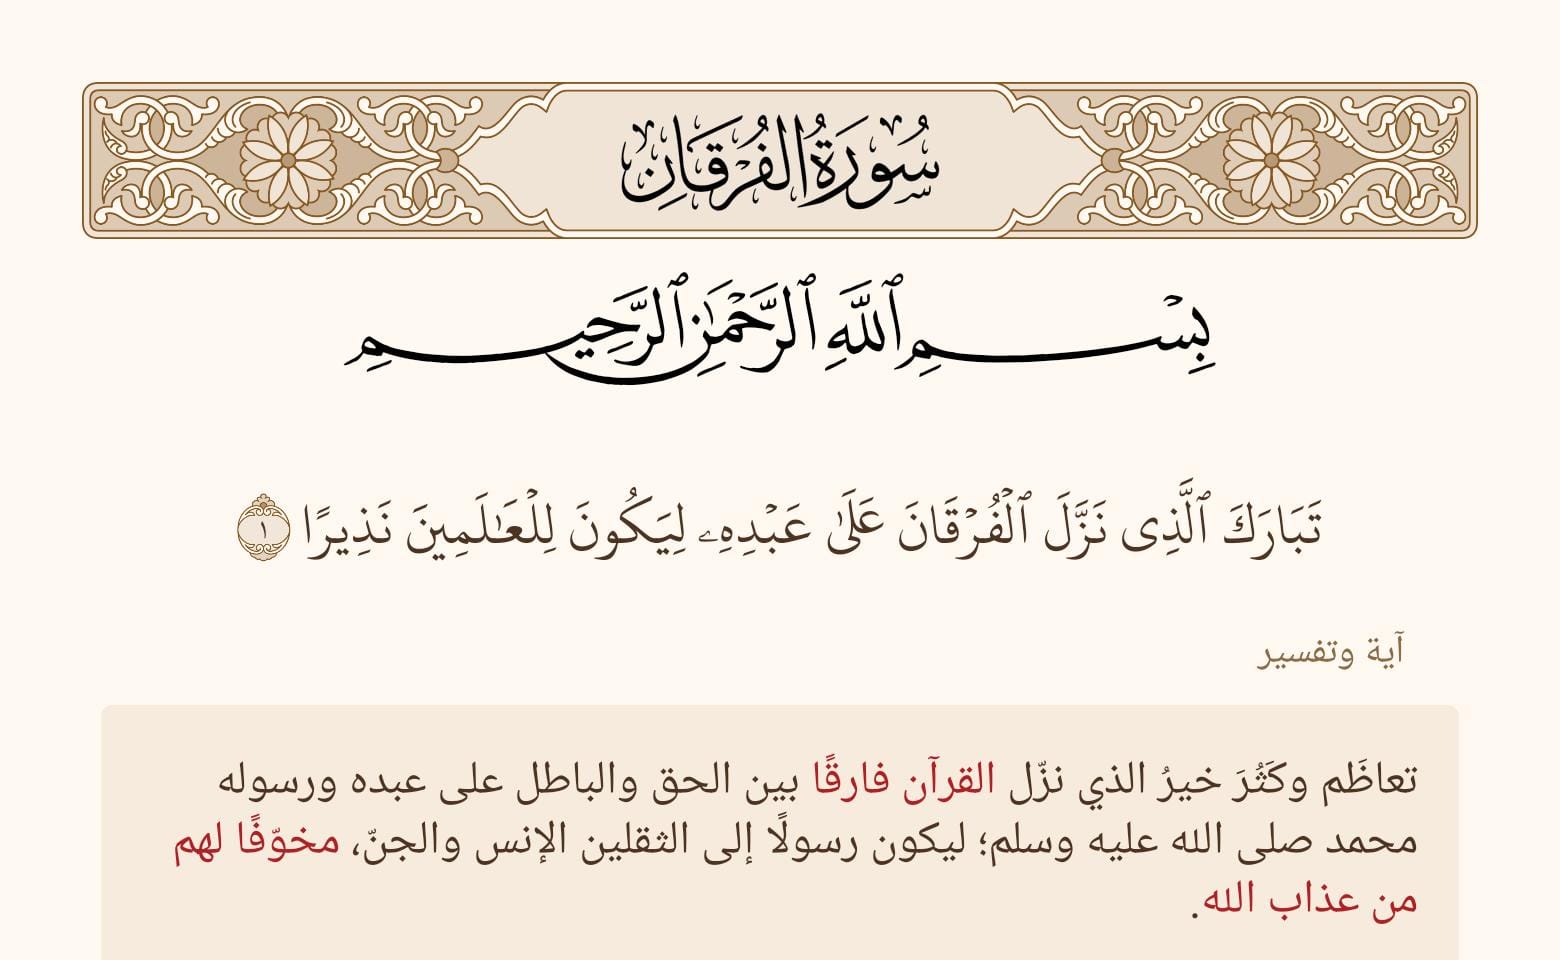 سُورَةُ الفُرْقَانِ
بِسْمِ ٱللَّهِ ٱلرَّحْمَٰنِ ٱلرَّحِيمِ
تَبَارَكَ ٱلَّذِى نَزَّلَ ٱلْفُرْقَانَ عَلَىٰ عَبْدِهِۦ لِيَكُونَ لِلْعَٰلَمِينَ نَذِيرًا ١
آية وتفسير
تعاظَم وكَثُرَ خيرُ الذي نزّل القرآن فارقًا بين الحق والباطل على عبده ورسوله
محمد صلى الله عليه وسلم؛ ليكون رسولًا إلى الثقلين الإنس والجنّ، مخوّفًا لهم
من عذاب الله.